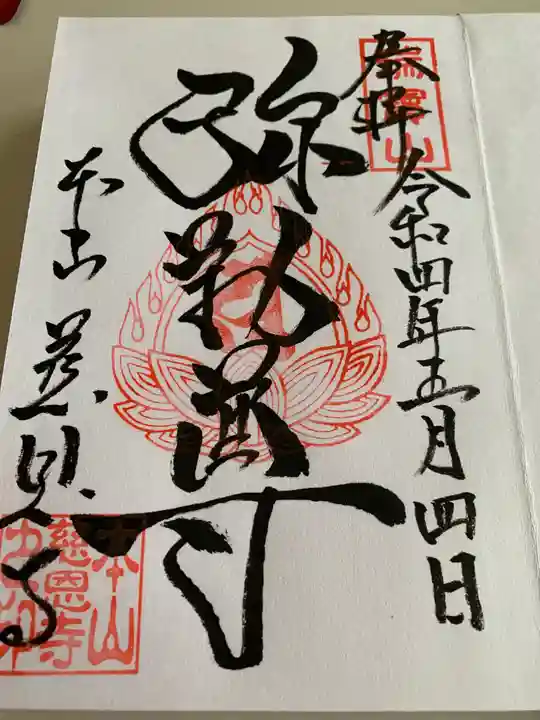 奉拝 令和四年五月四日
弥勒尊
本山 慈恩寺
瑞寶山
本山
慈恩寺